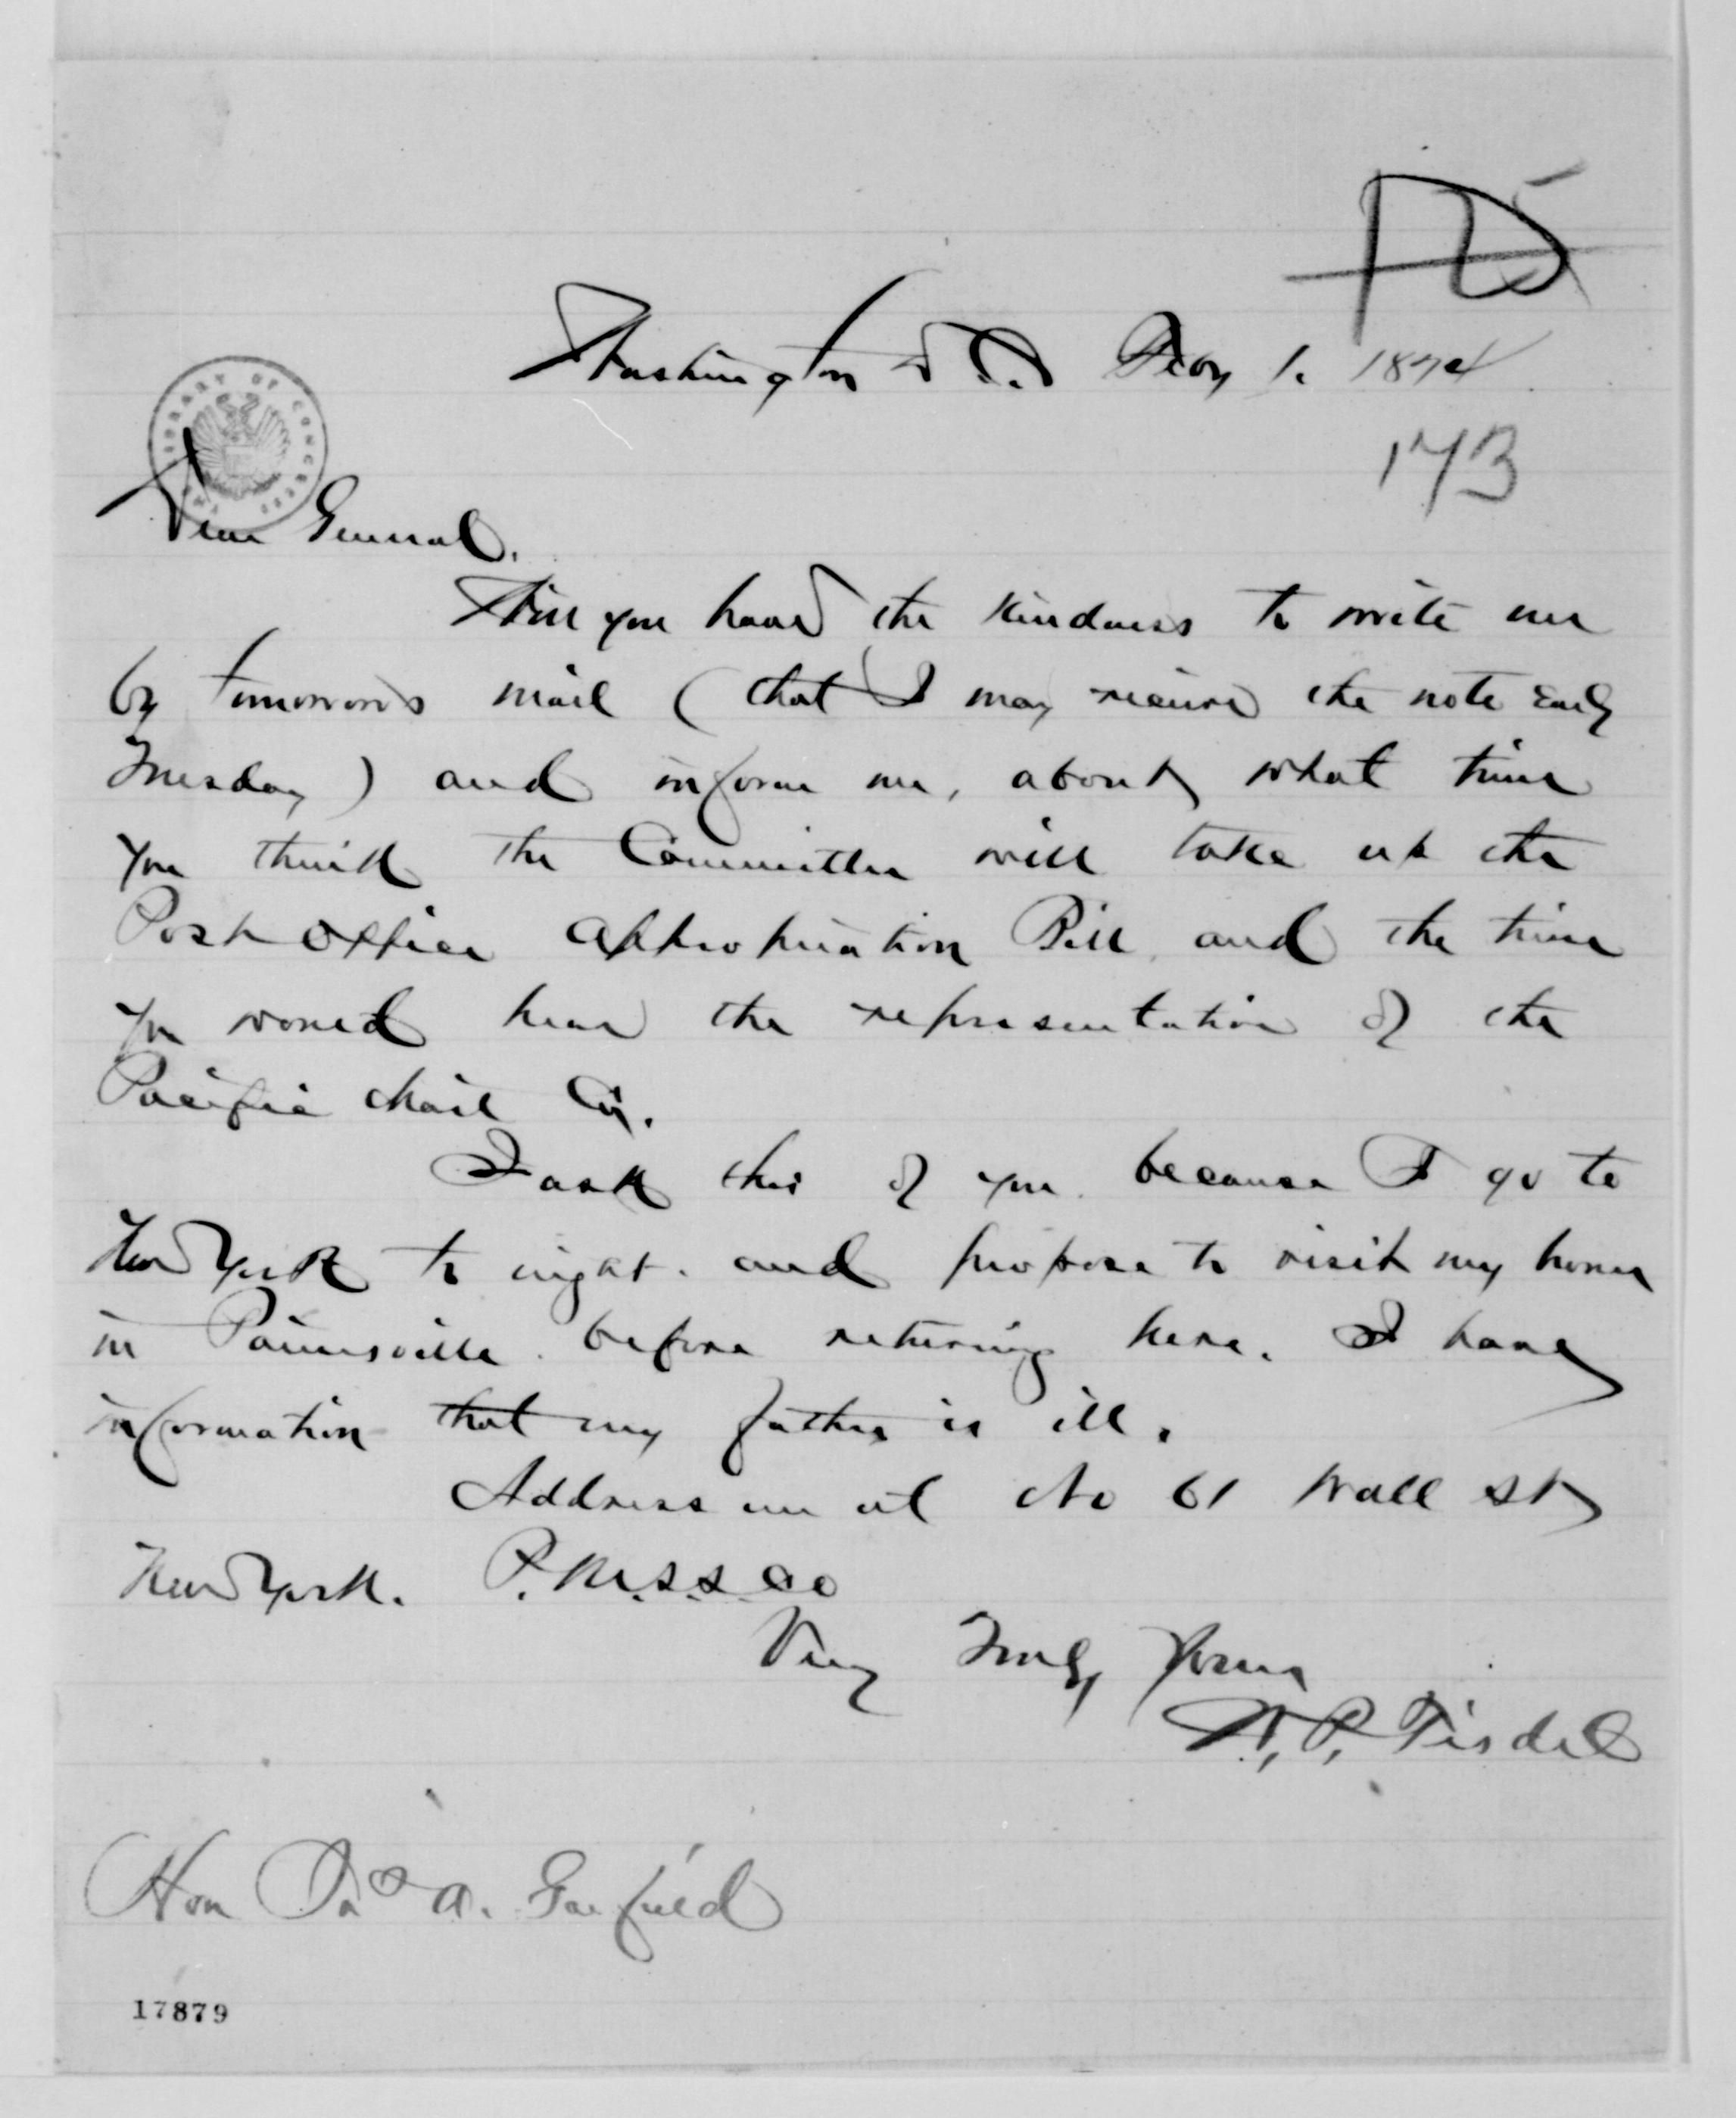 Washington D.C. Feby 1. 1874
173
LIBRARY OF CONGRESS
Dear General.
Will you have the kindness to write me
by tomorrows mail (that I may receive the note early
Tuesday) and inform me, about what time
you think the Committee will take up the
Post Office Appropriation Bill and the time
you would hear the representation of the
Pacific Mail Co.
I ask this of you because I go to
New York to night. and propose to visit my home
in Painesville before returning here. I have
information that my father is ill.
Address me at No 61 Wall St
New York. P.M.S.S. Co
Very Truly Yours
W. P. Tisdel
Hon Jas A. Garfield
17879